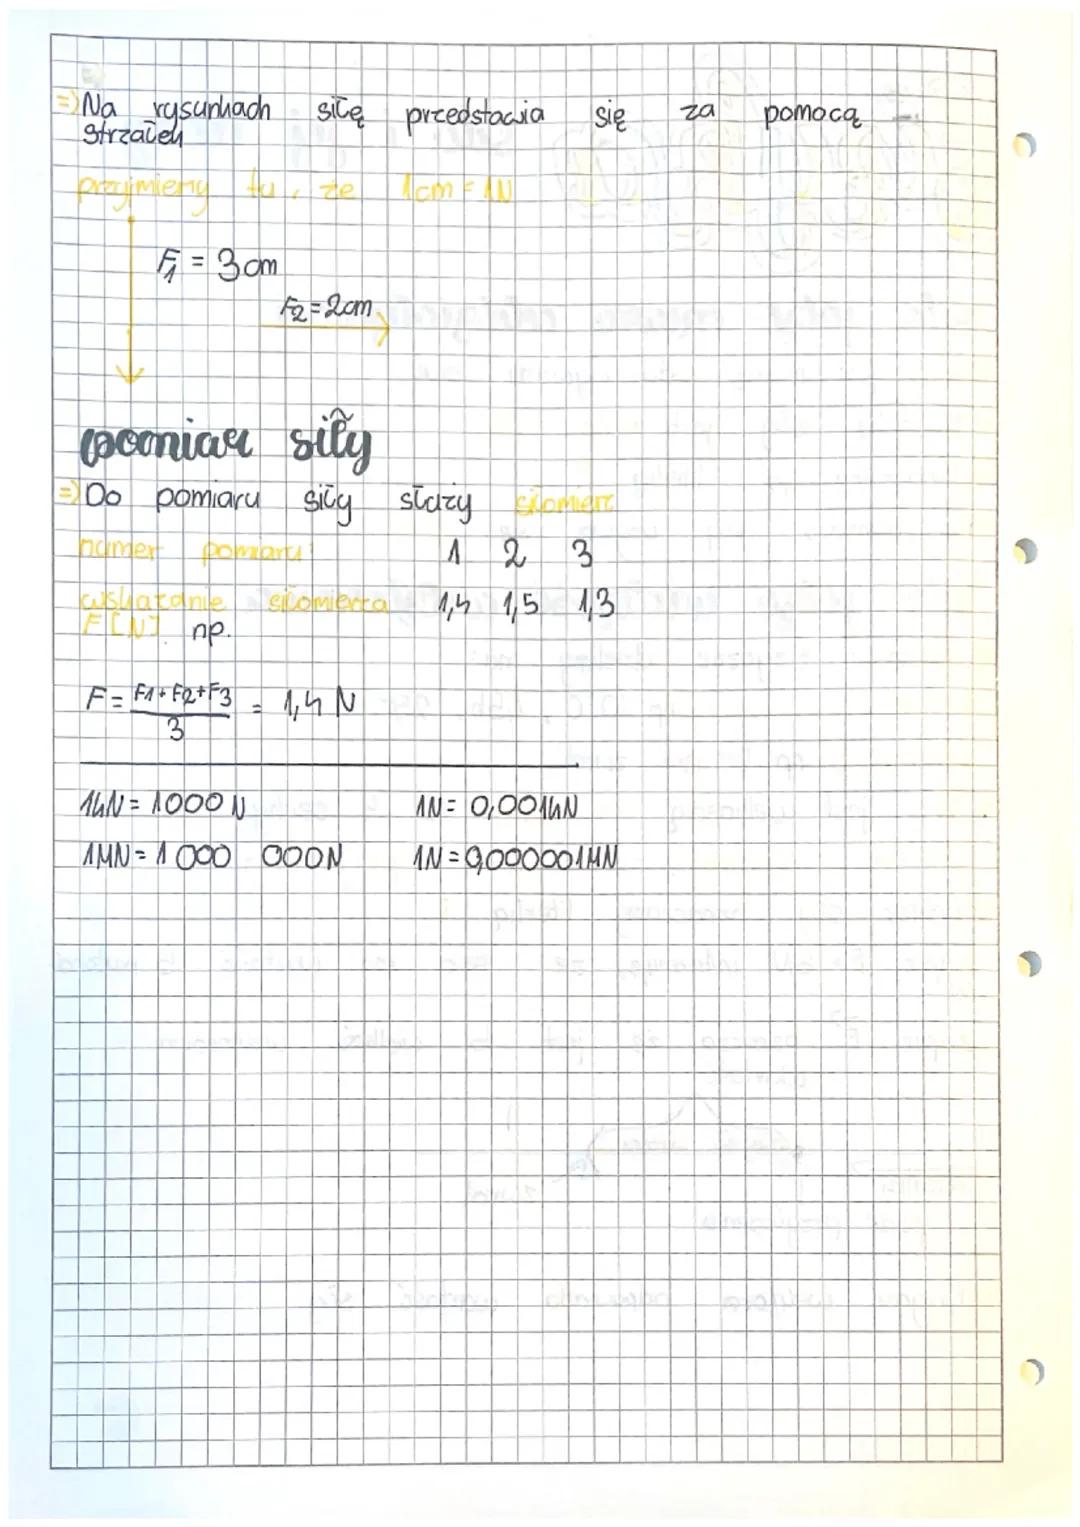 => Na rysunkach siłę przedstawia się za pomocą
strzałek
przyjmiemy tu, że 1cm = 1N
F1 = 3cm
F2 = 2cm
pomiar siły
=> Do pomiaru siły służy siłomierz
numer pomiaru: 1 2 3
wskazanie siłomierza 1,4 1,5 1,3
F [N] np.
F = F1 + F2 + F3 / 3 = 1,4 N
1kN = 1000 N 1N = 0,001kN
1MN = 1 000 000N 1N = 0,000001MN